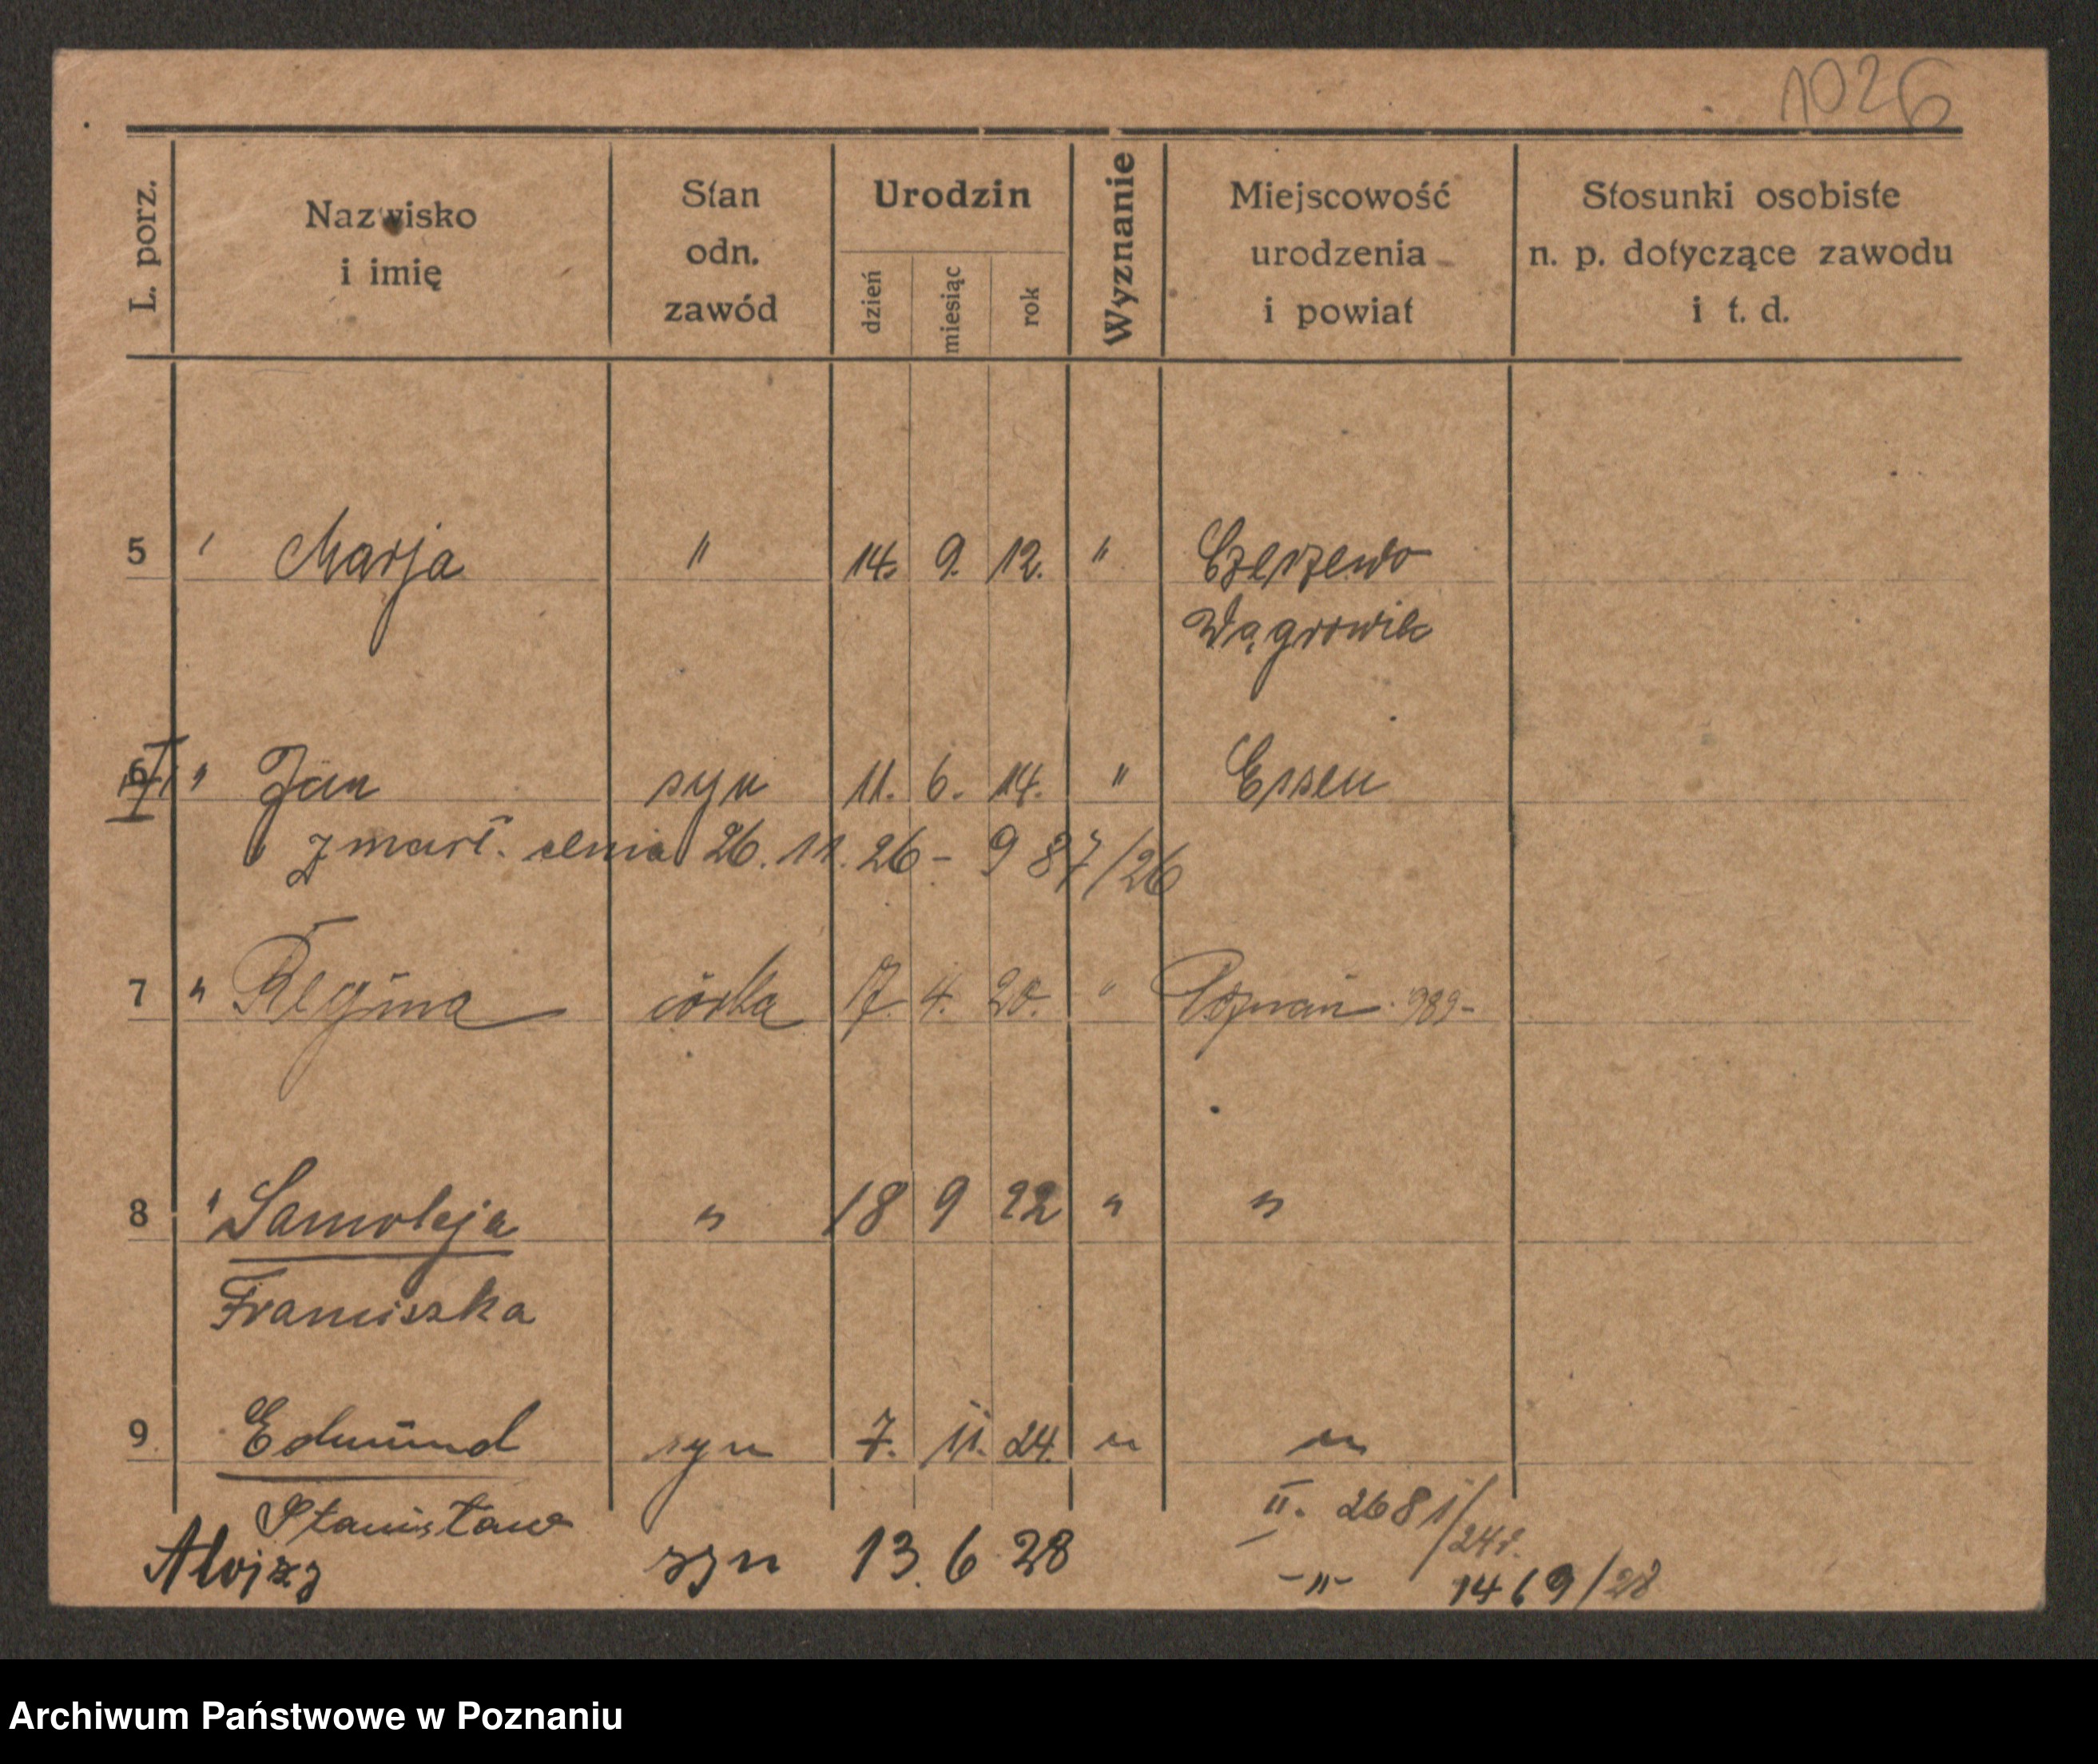 1026
L. porz. Nazwisko i imię Stan odn. zawód Urodzin dzień miesiąc rok Wyznanie Miejscowość urodzenia i powiat Stosunki osobiste n. p. dotyczące zawodu i t. d.
5 " Marja " 14. 9. 12. " Czerzewo
Wągrowiec
6 " Jan syn 11. 6. 14. " Essen
zmarł. dnia 26. 11. 26 - 987/26
7 " Regina córka 17. 4. 20. " Poznań. 989-
8 " Samoleja " 18 9 22 " "
Franciszka
9 Edmund syn 7. 11. 24. " "
Stanisław II. 2681/24r.
Alojzy syn 13. 6 28 -"- 1469/28
Archiwum Państwowe w Poznaniu